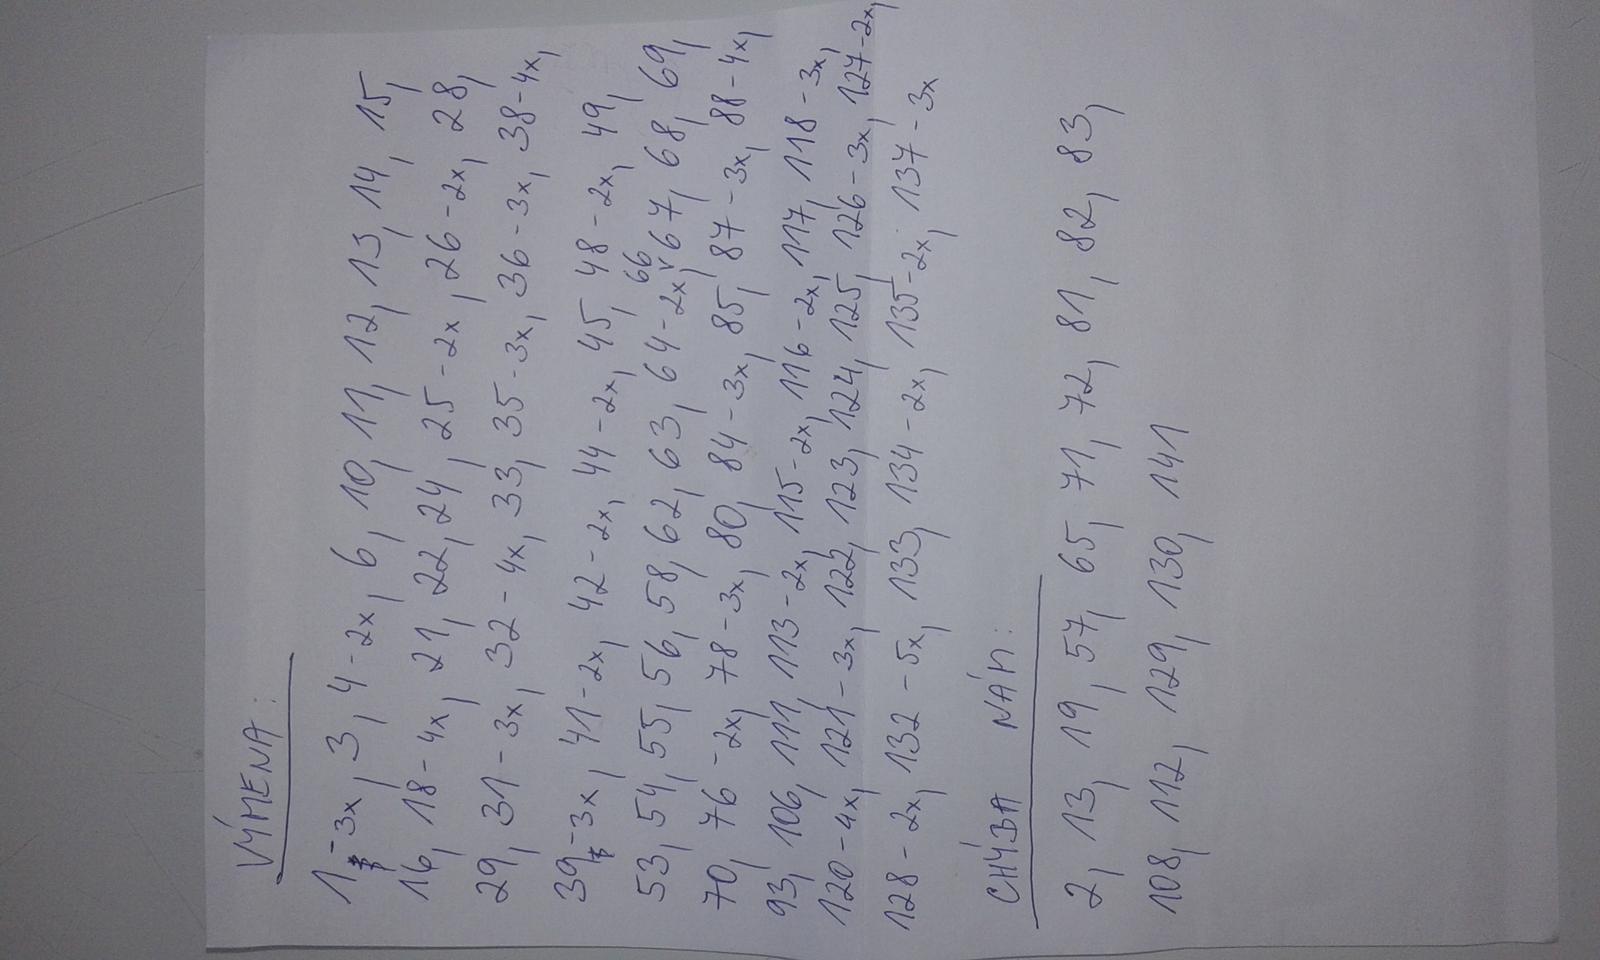 VÝMENA:
1-3x, 3, 4-2x, 6, 10, 11, 12, 13, 14, 15,
16, 18-4x, 21, 22, 24, 25-2x, 26-2x, 28,
29, 31-3x, 32-4x, 33, 35-3x, 36-3x, 38-4x,
39-3x, 41-2x, 42-2x, 44-2x, 45, 48-2x, 49,
53, 54, 55, 56, 58, 62, 63, 64-2x, 66, 67, 68, 69,
70, 76-2x, 78-3x, 80, 84-3x, 85, 87-3x, 88-4x,
93, 106, 111, 113-2x, 115-2x, 116-2x, 117, 118-3x,
120-4x, 121-3x, 122, 123, 124, 125, 126-3x, 127-2x,
128-2x, 132-5x, 133, 134-2x, 135-2x, 137-3x
CHÝBA NÁM:
2, 13, 19, 57, 65, 71, 72, 81, 82, 83,
108, 112, 129, 130, 141